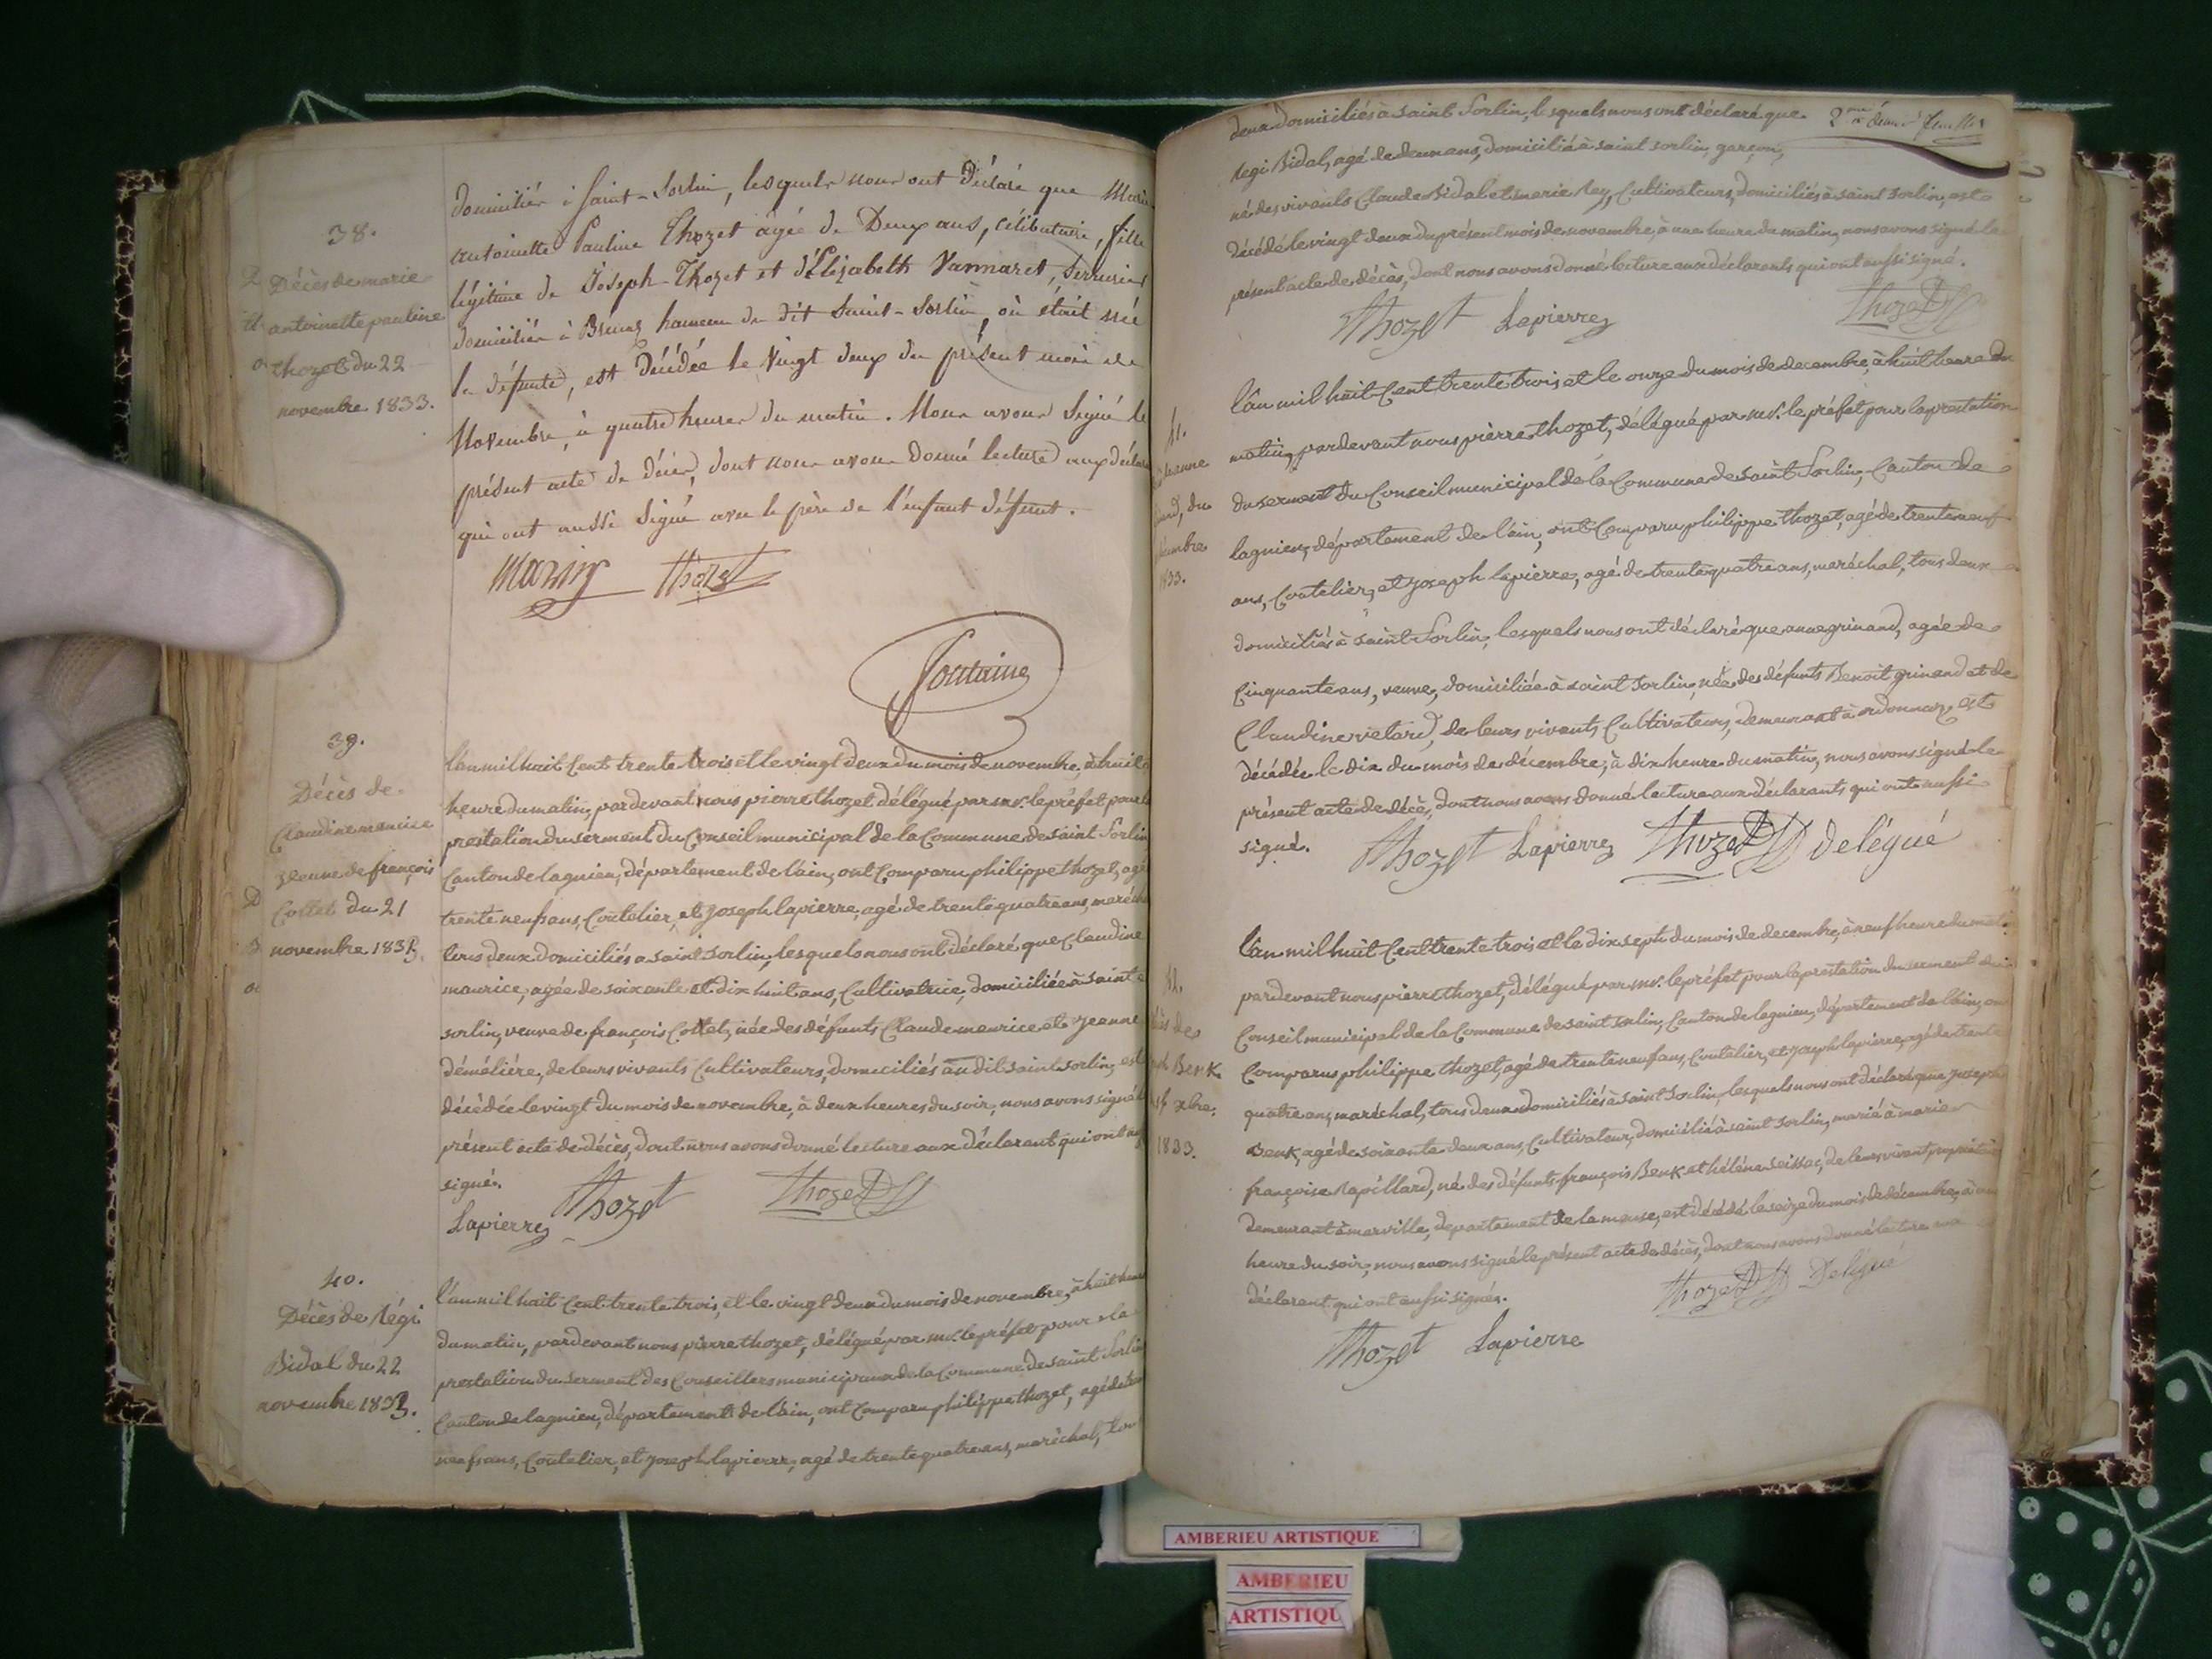 38.
Décès de marie
antoinette pauline
thozet du 22
novembre 1833.
domiciliés à Saint-Sorlin, lesquels nous ont déclaré que Marie
antoinette Pauline Thozet agée de Deux ans, célibataire, fille
légitime de Joseph Thozet et d'Élizabeth Vannaret, Serrurier
domiciliés à hameau du dit Saint-Sorlin, où était née
la défunte, est Décédée le Vingt deux du présent mois de
Novembre, à quatre heures du matin. Nous avons Signé le
présent acte de décès, dont nous avons donné lecture aux décla
qui ont aussi Signé avec le père de l'enfant défunt.
Marin Thozet
Fontaine
39.
Décès de
Claudine maurice
veuve de françois
Collet du 21
novembre 1833.
l'an mil huit Cent trente trois et le vingt deux du mois de novembre, à huit
heure du matin, pardevant nous pierre thozet délégué par mr. le préfet pour la
prestation du serment du Conseil municipal de la Commune de saint Sorlin
Canton de lagnieu, département de l'ain, ont Comparu philippe thozet, agé
trente neuf ans, Coutelier, et joseph lapierre, agé de trente quatre ans, maréch
tous deux domiciliés a saint sorlin, lesquels nous ont déclaré que Claudine
maurice, agée de soixante et dix huit ans, Cultivatrice, domiciliée à saint
sorlin, veuve de françois Collet, née des défunts Claude maurice et jeanne
déméliére, de leurs vivants Cultivateurs, domiciliés au dit saint sorlin, est
décédée le vingt du mois de novembre, à deux heures du soir, nous avons signé le
présent acte de décès, dont nous avons donné lecture aux déclarant qui ont au
signé.
Lapierre Thozet Thozet
40.
Décès de Régi
Bidal du 22
novembre 1833.
l'an mil huit Cent trente trois, et le vingt deux du mois de novembre, à huit heure
du matin, pardevant nous pierre thozet, délégué par mr. le préfet pour la
prestation du serment des Conseillers municipaux de la Commune de saint Sorlin
Canton de lagnieu, département de l'ain, ont Comparu philippe thozet, agé de tren
neuf ans, Coutelier, et joseph lapierre, agé de trente quatre ans, maréchal, tou
deux domiciliés à saint Sorlin, lesquels nous ont déclaré que
2me et dernier feuillet
Regi Bidal, agé de deux ans, domicilié à saint sorlin, garçon,
né des vivants Claude Bidal et marie Rey, Cultivateurs, domiciliés à saint sorlin, est
décédé le vingt deux du présent mois de novembre, à une heure du matin, nous avons signé le
présent acte de décès, dont nous avons donné lecture aux déclarants qui ont aussi signé.
Thozet Lapierre Thozet
41.
1833.
l'an mil huit Cent trente trois et le onze du mois de decembre, à huit heure du
matin, pardevant nous pierre thozet, délégué par mr. le préfet pour la prestation
du serment du Conseil municipal de la Commune de saint Sorlin, Canton de
lagnieu, département de l'ain, ont Comparu philippe thozet, agé de trente neuf
ans, Coutelier, et joseph lapierre, agé de trente quatre ans, maréchal, tous deux
domiciliés à saint Sorlin, lesquels nous ont déclaré que anne grinand, agée de
Cinquante ans, veuve, domiciliée à saint sorlin, née des défunts Benoit grinand et de
Claudine vietard, de leurs vivants Cultivateurs, demeurant à ordonnaz est
décédée le dix du mois de décembre, à dix heure du matin, nous avons signé le
présent acte de décè, dont nous avons donné lecture aux déclarants qui ont aussi
signé. Thozet Lapierre Thozet delégué
42.
Benk
xbre
1833.
l'an mil huit Cent trente trois et le dix sept du mois de decembre, à neuf heure du mati
pardevant nous pierre thozet, délégué par mr. le préfet pour la prestation du serment du
Conseil municipal de la Commune de saint sorlin, Canton de lagnieu, département de l'ain, on
Comparus philippe thozet, agé de trente neuf ans, Coutelier, et joseph lapierre, agé de trente
quatre ans, maréchal, tous deux domiciliés à saint sorlin, lesquels nous ont déclaré que joseph
Benk, agé de soixante deux ans, Cultivateur, domicilié à saint sorlin, marié à marie
françoise Rapillard, né des défunts françois Benk et hélène seissac, de leurs vivant propriétaire
demeurant à marville, departement de la meuse, est décédé le seize du mois de décembre, à
heure du soir, nous avons signé le présent acte de décès, dont nous avons donné lecture aux
déclarant qui ont aussi signés. Thozet Delégué
Thozet Lapierre
AMBERIEU ARTISTIQUE
AMBERIEU
ARTISTIQU